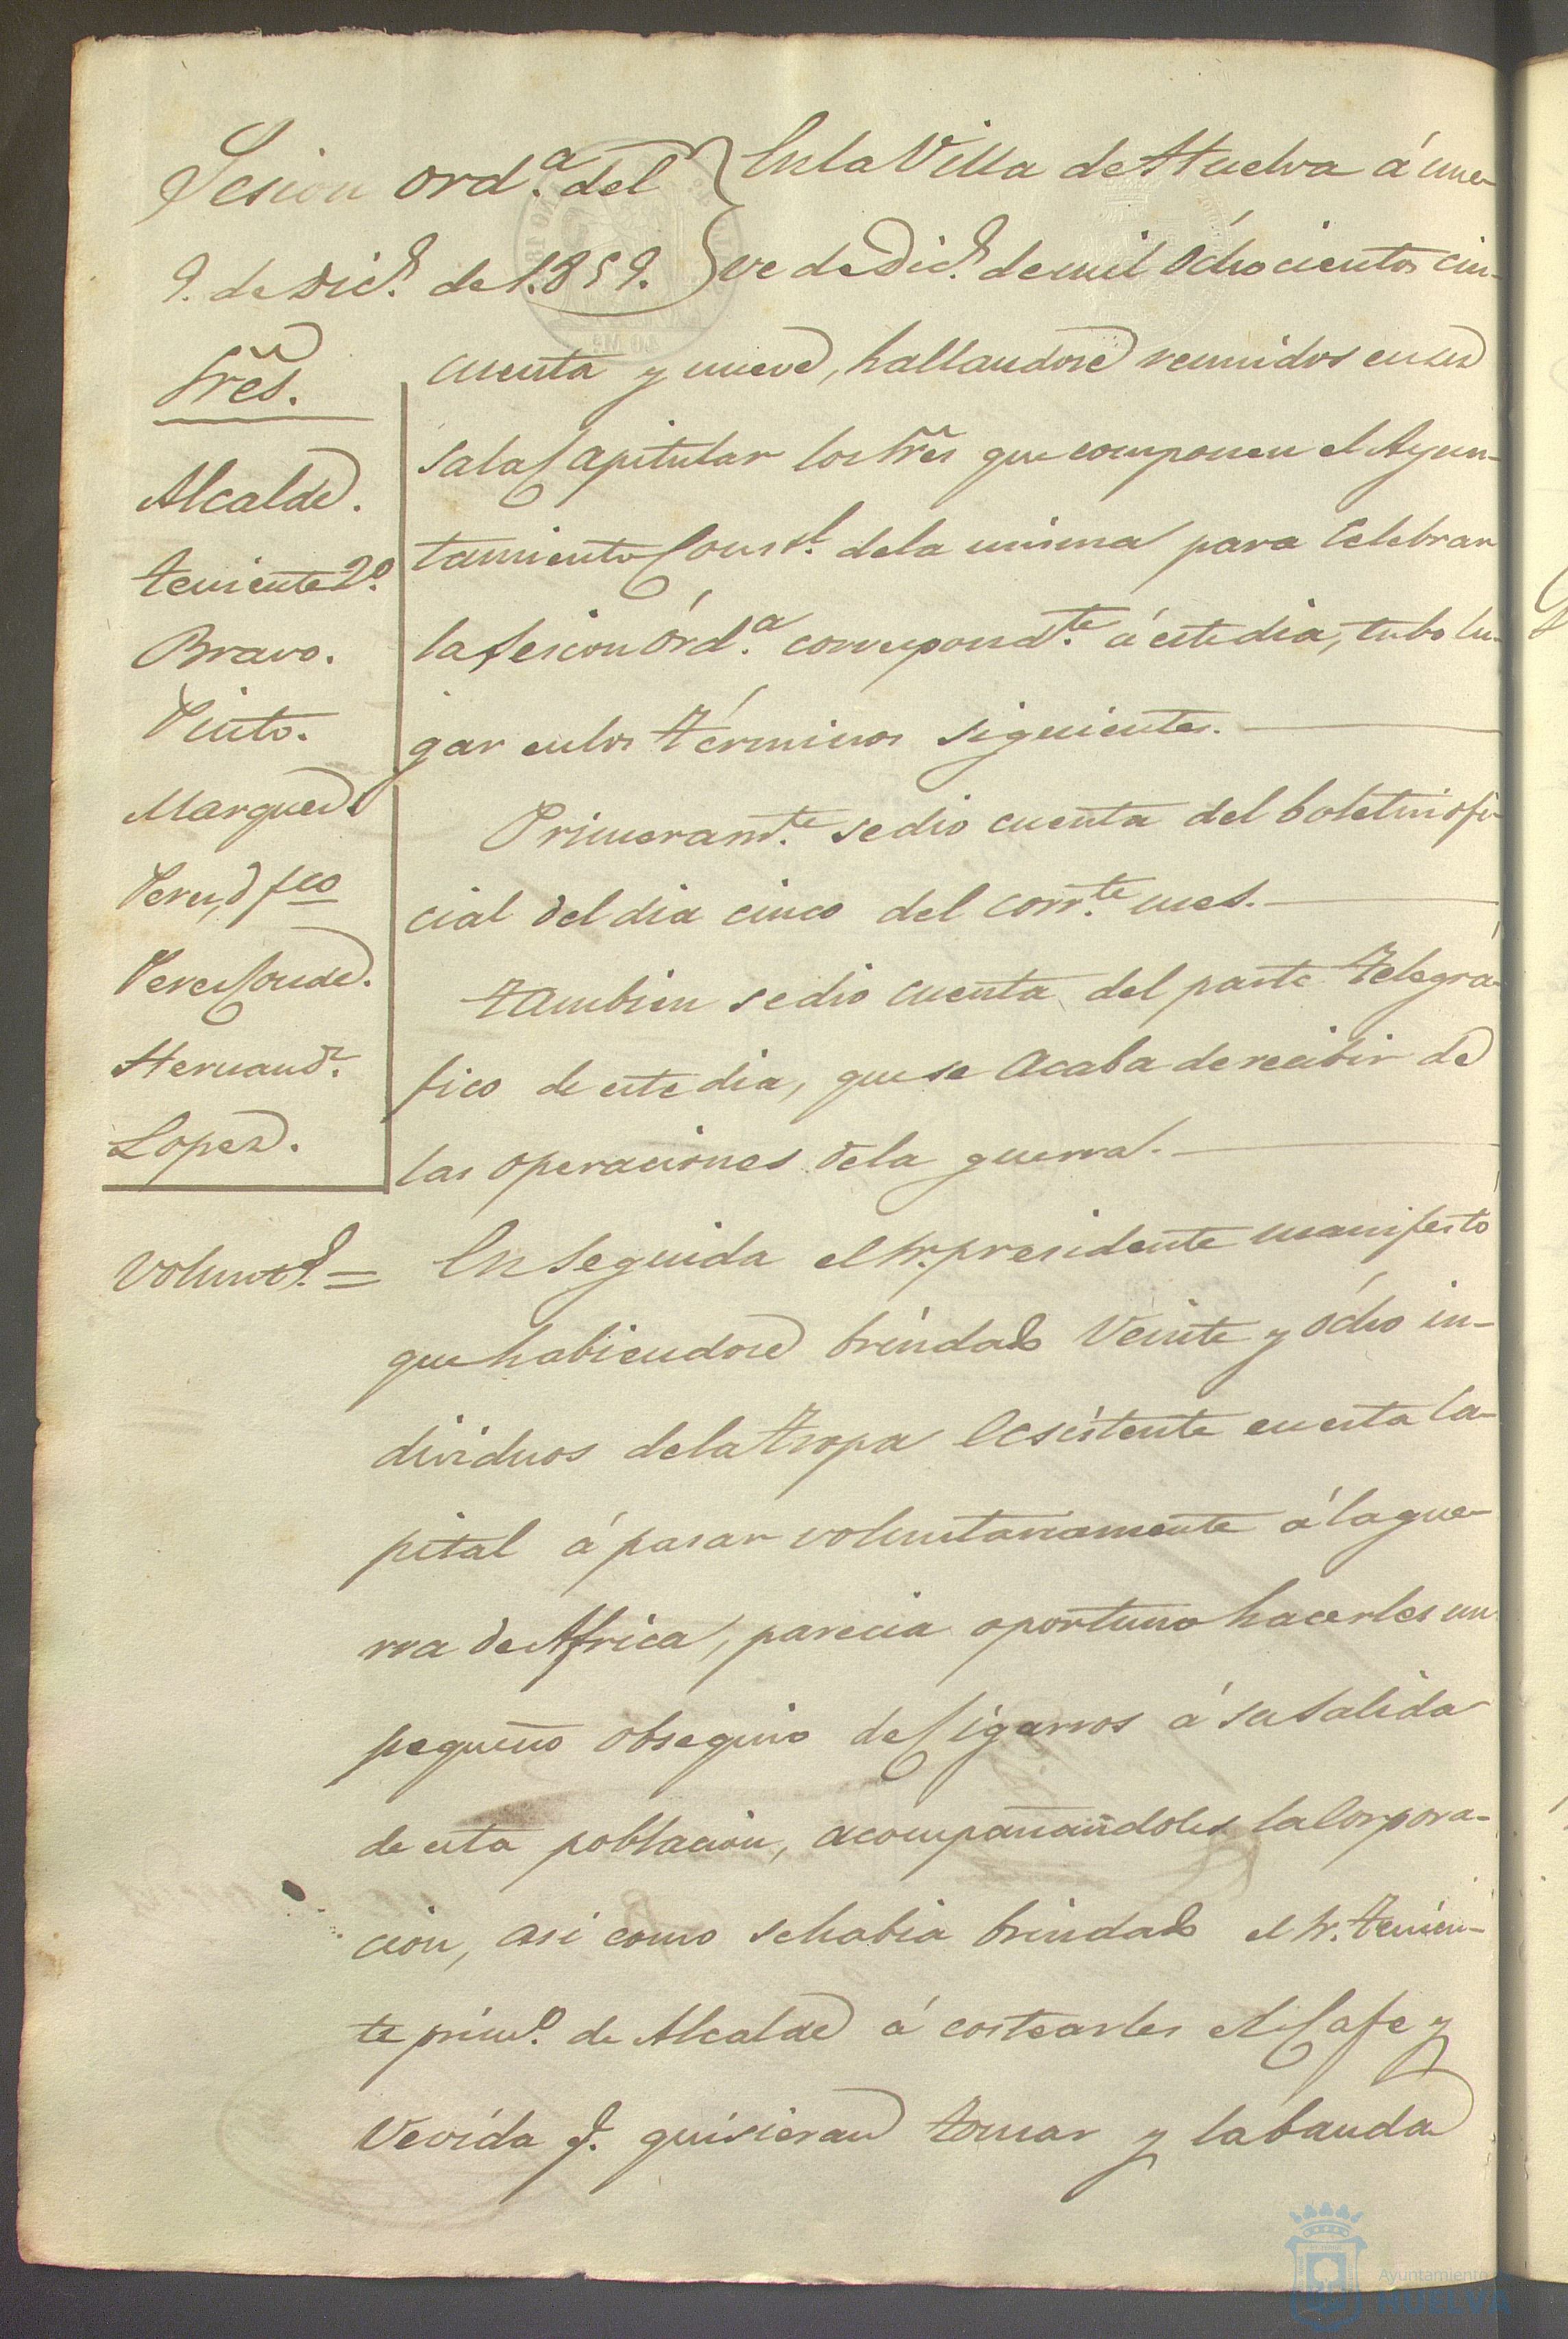 Sesion ord.ª del
9. de Dic.e de 1.859.
Sres.
Alcalde.
teniente 2º.
Bravo.
Pinto.
Marquez
Perez, d fco
Perez Conde.
Hernand.z
Lopez.
Volunt.s =
En la Villa de Huelva á nue-
ve de Dic.e de mil ochocientos cin-
cuenta y nueve, hallandose reunidos en su
sala Capitular los Sres que componen el Ayun-
tamiento Const.l de la misma para celebrar
la sesion órd.ª correspond.te á este dia, tubo lu-
gar en los términos siguientes.
Primeram.te se dio cuenta del boletin ofi-
cial del dia cinco del corr.te mes.
tambien se dio cuenta del parte telegra-
fico de este dia, que se acaba de recibir de
las operaciones de la guerra.
En seguida el Sr. presidente manifesto
que habiendose brindado veinte y ocho in-
dividuos de la tropa ecsistente en esta Ca-
pital á pasar voluntariamente á la gue-
rra de Africa, parecia oportuno hacerles un
pequeño obsequio de Cigarros á su salida
de esta poblacion, acompañandoles la Corpora-
cion, asi como se habia brindado el Sr. tenien-
te prim.o de Alcalde á costearles el Cafe y
Vevida q. quisieran tomar y la banda
Ayuntamiento
HUELVA